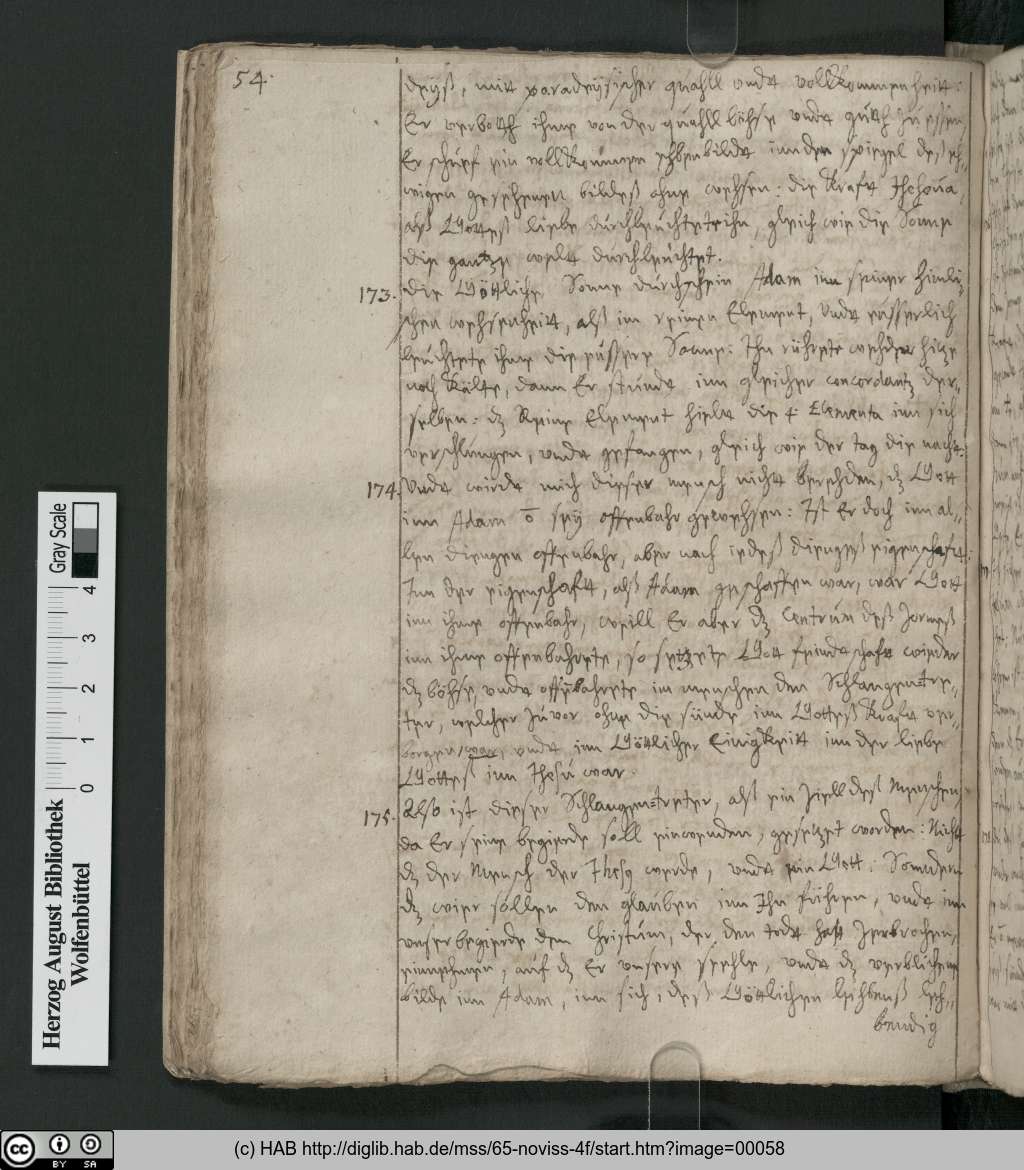 54.
deyß, mitt paradeysischer quahll undt vollkommenheitt:
Er verbotth ihme von der quahll böhse undt gutth zu essen,
Er schuef ein vollkommen ehbenbildt inn den spiegel deß eh,
wigen gesehenen bildeß ohne wehsen: die Krafft Jhehova
alß Gotteß liebe durchleuchtete ihn, gleich wie die Sonne
die gantze welt durchleuchtet.
173. die Göttliche Sonne durchschein Adam inn seiner himli,
schen wehsenheitt, alß im reinen Element, Undt eusserlich
leuchtete ihme die eussere Sonne: Ihn rührete wehder hitze
noch Kälte, dann Er stunde inn gleicher concordantz der,
selben: dz Reine Element hielt die 4 Elementa inn sich
verschlungen, undt gefangen, gleich wie der tag die nacht.
174. Undt wirdt mich dieser mensch nicht berehden, dz Gott
inn Adam ō sey offenbahr gewehsen: Ist Er doch inn al,,
len diengen offenbahr, aber nach iedeß diengeß eigenschafft:
Inn der eigenschafft, alß Adam geschaffen war, war Gott
inn ihme offenbahr, weill Er aber dz Centrum deß Zorneß
inn ihme offenbahrete, so setzete Gott feindtschafft wieder
dz böhse, undt offenbahrete im menschen den Schlangen=tre,,
ter, welcher zuvor ohne die sünde inn Gotteß Krafft ver,,
borgen, war, undt inn Göttlicher Einigkeitt inn der liebe
Gotteß inn Jhesu war.
175. Also ist dieser Schlangen=treter, alß ein Ziell deß Menschen,
da Er seine begierde soll einwenden, gesetzet worden: Nicht
dz der Mensch der Jhesq werde, undt ein Gott: Sonndern
dz wier sollen den glauben inn Ihn führen, undt inn
unser begierde den Christum, der den todt hatt zerbrochen,
einnehmen, auf dz Er unsere seehle, undt dz verblichene
bilde inn Adam, inn sich, deß Göttlichen lehbenß leh,,
bendig
Gray Scale
0 1 2 3 4
Herzog August Bibliothek
Wolfenbüttel
cc BY SA
(c) HAB http://diglib.hab.de/mss/65-noviss-4f/start.htm?image=00058